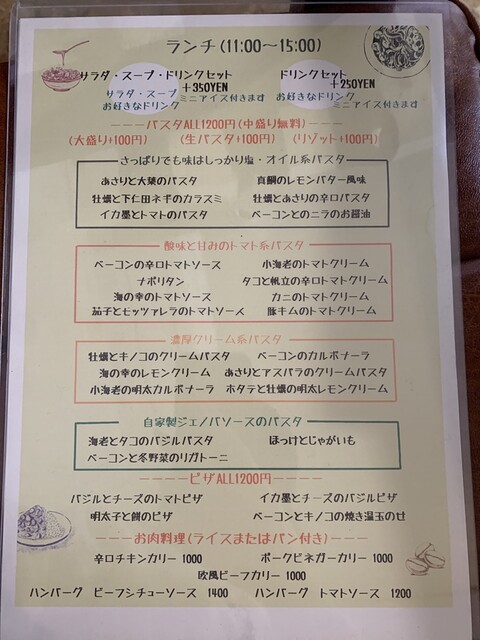 ランチ(11:00～15:00)
サラダ・スープ・ドリンクセット
+350YEN
サラダ・スープ
お好きなドリンク
ミニアイス付きます
ドリンクセット
+250YEN
お好きなドリンク
ミニアイス付きます
---パスタALL1200円(中盛り無料)----
(大盛り+100円) (生パスタ+100円) (リゾット+100円)
さっぱりでも味はしっかり塩・オイル系パスタ
あさりと大葉のパスタ 真鯛のレモンバター風味
牡蠣と下仁田ネギのカラスミ 牡蠣とあさりの辛口パスタ
イカ墨とトマトのパスタ ベーコンとのニラのお醤油
酸味と甘みのトマト系パスタ
ベーコンの辛口トマトソース 小海老のトマトクリーム
ナポリタン タコと帆立の辛口トマトクリーム
海の幸のトマトソース カニのトマトクリーム
茄子とモッツァレラのトマトソース 豚キムのトマトクリーム
濃厚クリーム系パスタ
牡蠣とキノコのクリームパスタ ベーコンのカルボナーラ
海の幸のレモンクリーム あさりとアスパラのクリームパスタ
小海老の明太カルボナーラ ホタテと牡蠣の明太レモンクリーム
自家製ジェノバソースのパスタ
海老とタコのバジルパスタ ほっけとじゃがいも
ベーコンと冬野菜のリガトーニ
----ピザALL1200円----
バジルとチーズのトマトピザ イカ墨とチーズのバジルピザ
明太子と餅のピザ ベーコンとキノコの焼き温玉のせ
---お肉料理(ライスまたはパン付き)---
辛口チキンカリー 1000 ポークビネガーカリー 1000
欧風ビーフカリー 1000
ハンバーグ ビーフシチューソース 1400 ハンバーグ トマトソース 1200